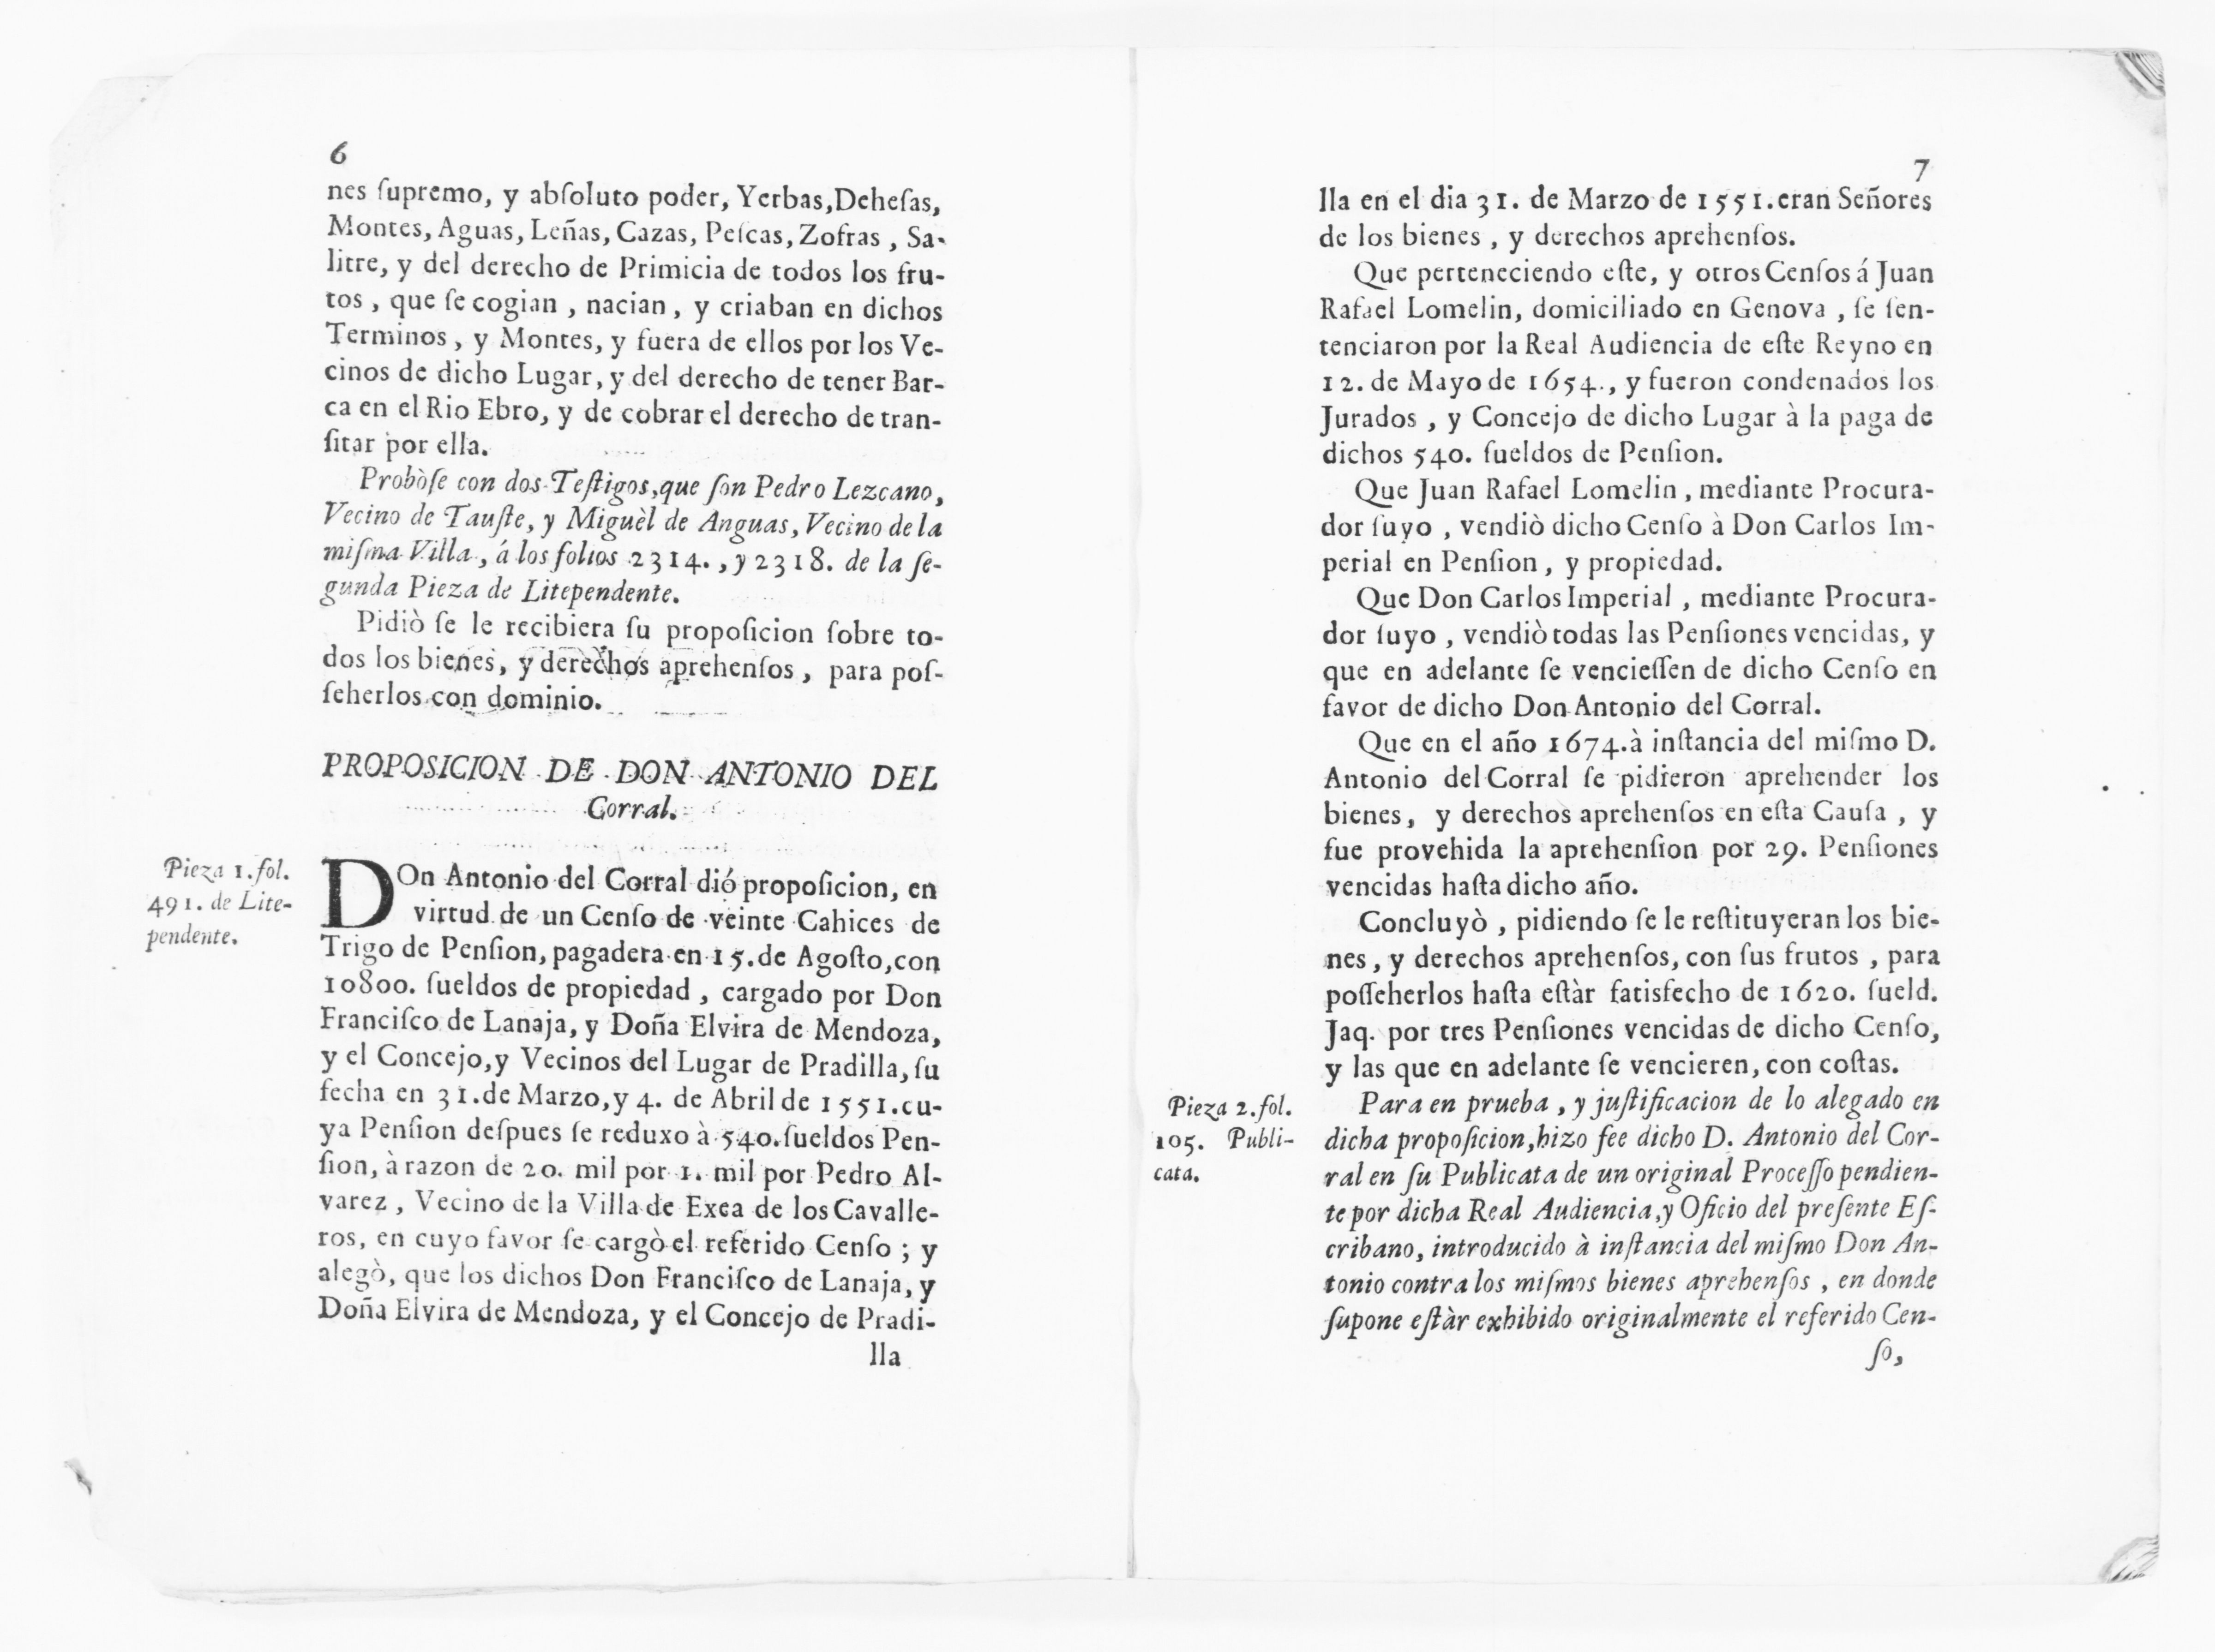 6
nes ſupremo, y abſoluto poder, Yerbas,Deheſas,
Montes, Aguas, Leñas, Cazas, Peſcas, Zofras , Sa-
litre, y del derecho de Primicia de todos los fru-
tos , que ſe cogian , nacian , y criaban en dichos
Terminos , y Montes, y fuera de ellos por los Ve-
cinos de dicho Lugar, y del derecho de tener Bar-
ca en el Rio Ebro, y de cobrar el derecho de tran-
ſitar por ella.
Probòſe con dos Teſtigos,que ſon Pedro Lezcano,
Vecino de Tauſte, y Miguèl de Anguas, Vecino de la
miſma Villa , á los folios 2314. , y 2318. de la ſe-
gunda Pieza de Litependente.
Pidiò ſe le recibiera ſu propoſicion ſobre to-
dos los bienes, y derechos aprehenſos , para poſ-
ſeherlos con dominio.
PROPOSICION DE DON ANTONIO DEL
Corral.
Pieza 1. fol.
491. de Lite-
pendente.
DOn Antonio del Corral dió propoſicion, en
virtud de un Cenſo de veinte Cahices de
Trigo de Penſion, pagadera en 15. de Agoſto,con
10800. ſueldos de propiedad , cargado por Don
Franciſco de Lanaja, y Doña Elvira de Mendoza,
y el Concejo,y Vecinos del Lugar de Pradilla, ſu
fecha en 31.de Marzo,y 4. de Abril de 1551.cu-
ya Penſion deſpues ſe reduxo à 540. ſueldos Pen-
ſion, à razon de 20. mil por 1. mil por Pedro Al-
varez , Vecino de la Villa de Exea de los Cavalle-
ros, en cuyo favor ſe cargò el referido Cenſo ; y
alegò, que los dichos Don Franciſco de Lanaja, y
Doña Elvira de Mendoza, y el Concejo de Pradi-
lla
7
lla en el dia 31. de Marzo de 1551.eran Señores
de los bienes , y derechos aprehenſos.
Que perteneciendo eſte, y otros Cenſos á Juan
Rafael Lomelin, domiciliado en Genova , ſe ſen-
tenciaron por la Real Audiencia de eſte Reyno en
12. de Mayo de 1654., y fueron condenados los
Jurados , y Concejo de dicho Lugar à la paga de
dichos 540. ſueldos de Penſion.
Que Juan Rafael Lomelin , mediante Procura-
dor ſuyo , vendiò dicho Cenſo à Don Carlos Im-
perial en Penſion , y propiedad.
Que Don Carlos Imperial , mediante Procura-
dor ſuyo , vendiò todas las Penſiones vencidas, y
que en adelante ſe vencieſſen de dicho Cenſo en
favor de dicho Don Antonio del Corral.
Que en el año 1674.à inſtancia del miſmo D.
Antonio del Corral ſe pidieron aprehender los
bienes, y derechos aprehenſos en eſta Cauſa , y
fue provehida la aprehenſion por 29. Penſiones
vencidas haſta dicho año.
Concluyò , pidiendo ſe le reſtituyeran los bie-
nes , y derechos aprehenſos, con ſus frutos , para
poſſeherlos haſta eſtàr ſatisfecho de 1620. ſueld.
Jaq. por tres Penſiones vencidas de dicho Cenſo,
y las que en adelante ſe vencieren, con coſtas.
Pieza 2. fol.
105. Publi-
cata.
Para en prueba , y juſtificacion de lo alegado en
dicha propoſicion,hizo fee dicho D. Antonio del Cor-
ral en ſu Publicata de un original Proceſſo pendien-
te por dicha Real Audiencia,y Oficio del preſente Eſ-
cribano, introducido à inſtancia del miſmo Don An-
tonio contra los miſmos bienes aprehenſos , en donde
ſupone eſtàr exhibido originalmente el referido Cen-
ſo,